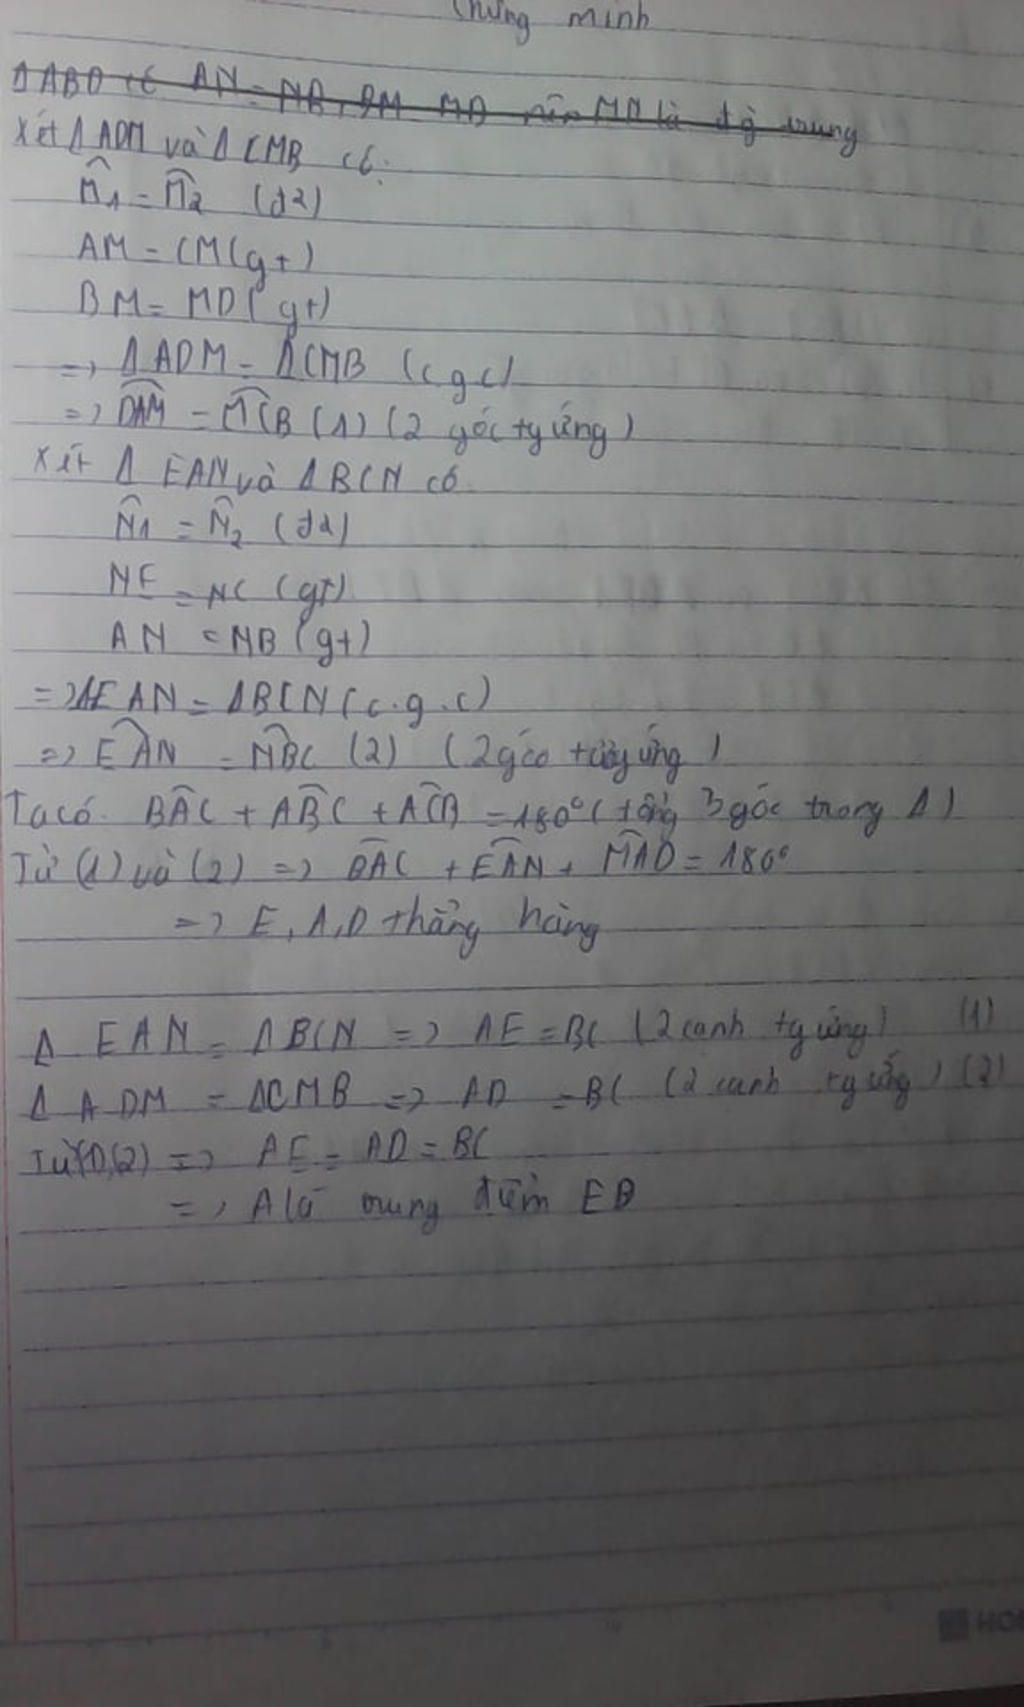 Chứng minh
Δ ABD có AN = NB, DM = MB nên MN là đg trung
Xét Δ ADM và Δ CMB có:
M̂1 = M̂2 (đ2)
AM = CM (gt)
BM = MD (gt)
=> Δ ADM = Δ CMB (c g c)
=> DÂM = MĈB (1) (2 góc tg ứng)
Xét Δ EAN và Δ BCN có
N̂1 = N̂2 (đ2)
NE = NC (gt)
AN = NB (gt)
=> Δ EAN = Δ BCN (c.g.c)
=> EÂN = NB̂C (2) (2 góc tương ứng)
Ta có. BÂC + AB̂C + AĈB = 180° (tổng 3 góc trong Δ)
Từ (1) và (2) => BÂC + EÂN + MÂD = 180°
=> E, A, D thẳng hàng
Δ EAN = Δ BCN => AE = BC (2 cạnh tg ứng) (1)
Δ ADM = ΔCMB => AD = BC (2 cạnh tg ứng) (2)
Từ (1)(2) => AE = AD = BC
=> A là trung điểm ED